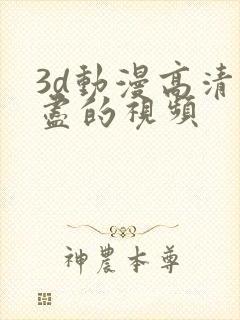 3d動漫高清
盡的視頻
神農本尊